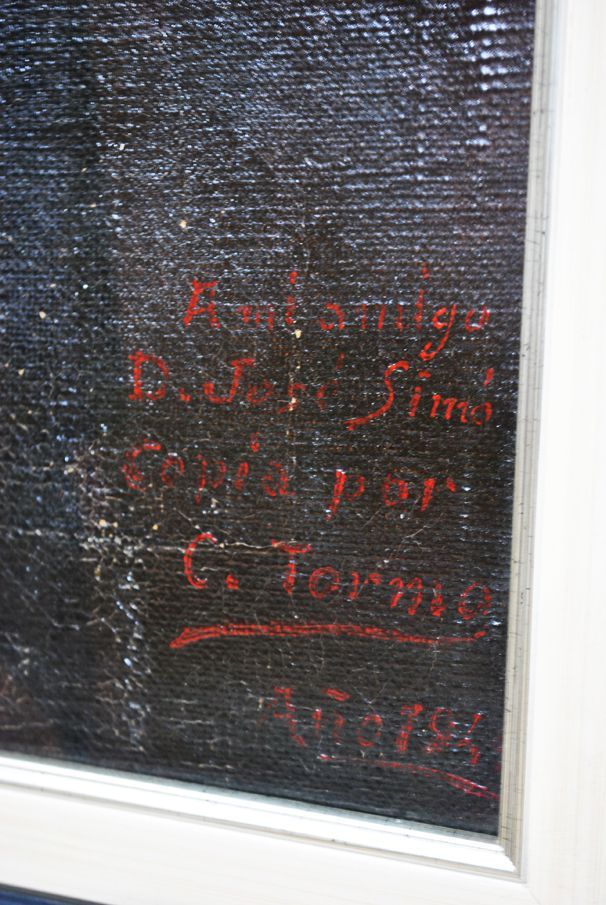 A mi amigo
D. José Simó
Copia por
C. Tormo
Año